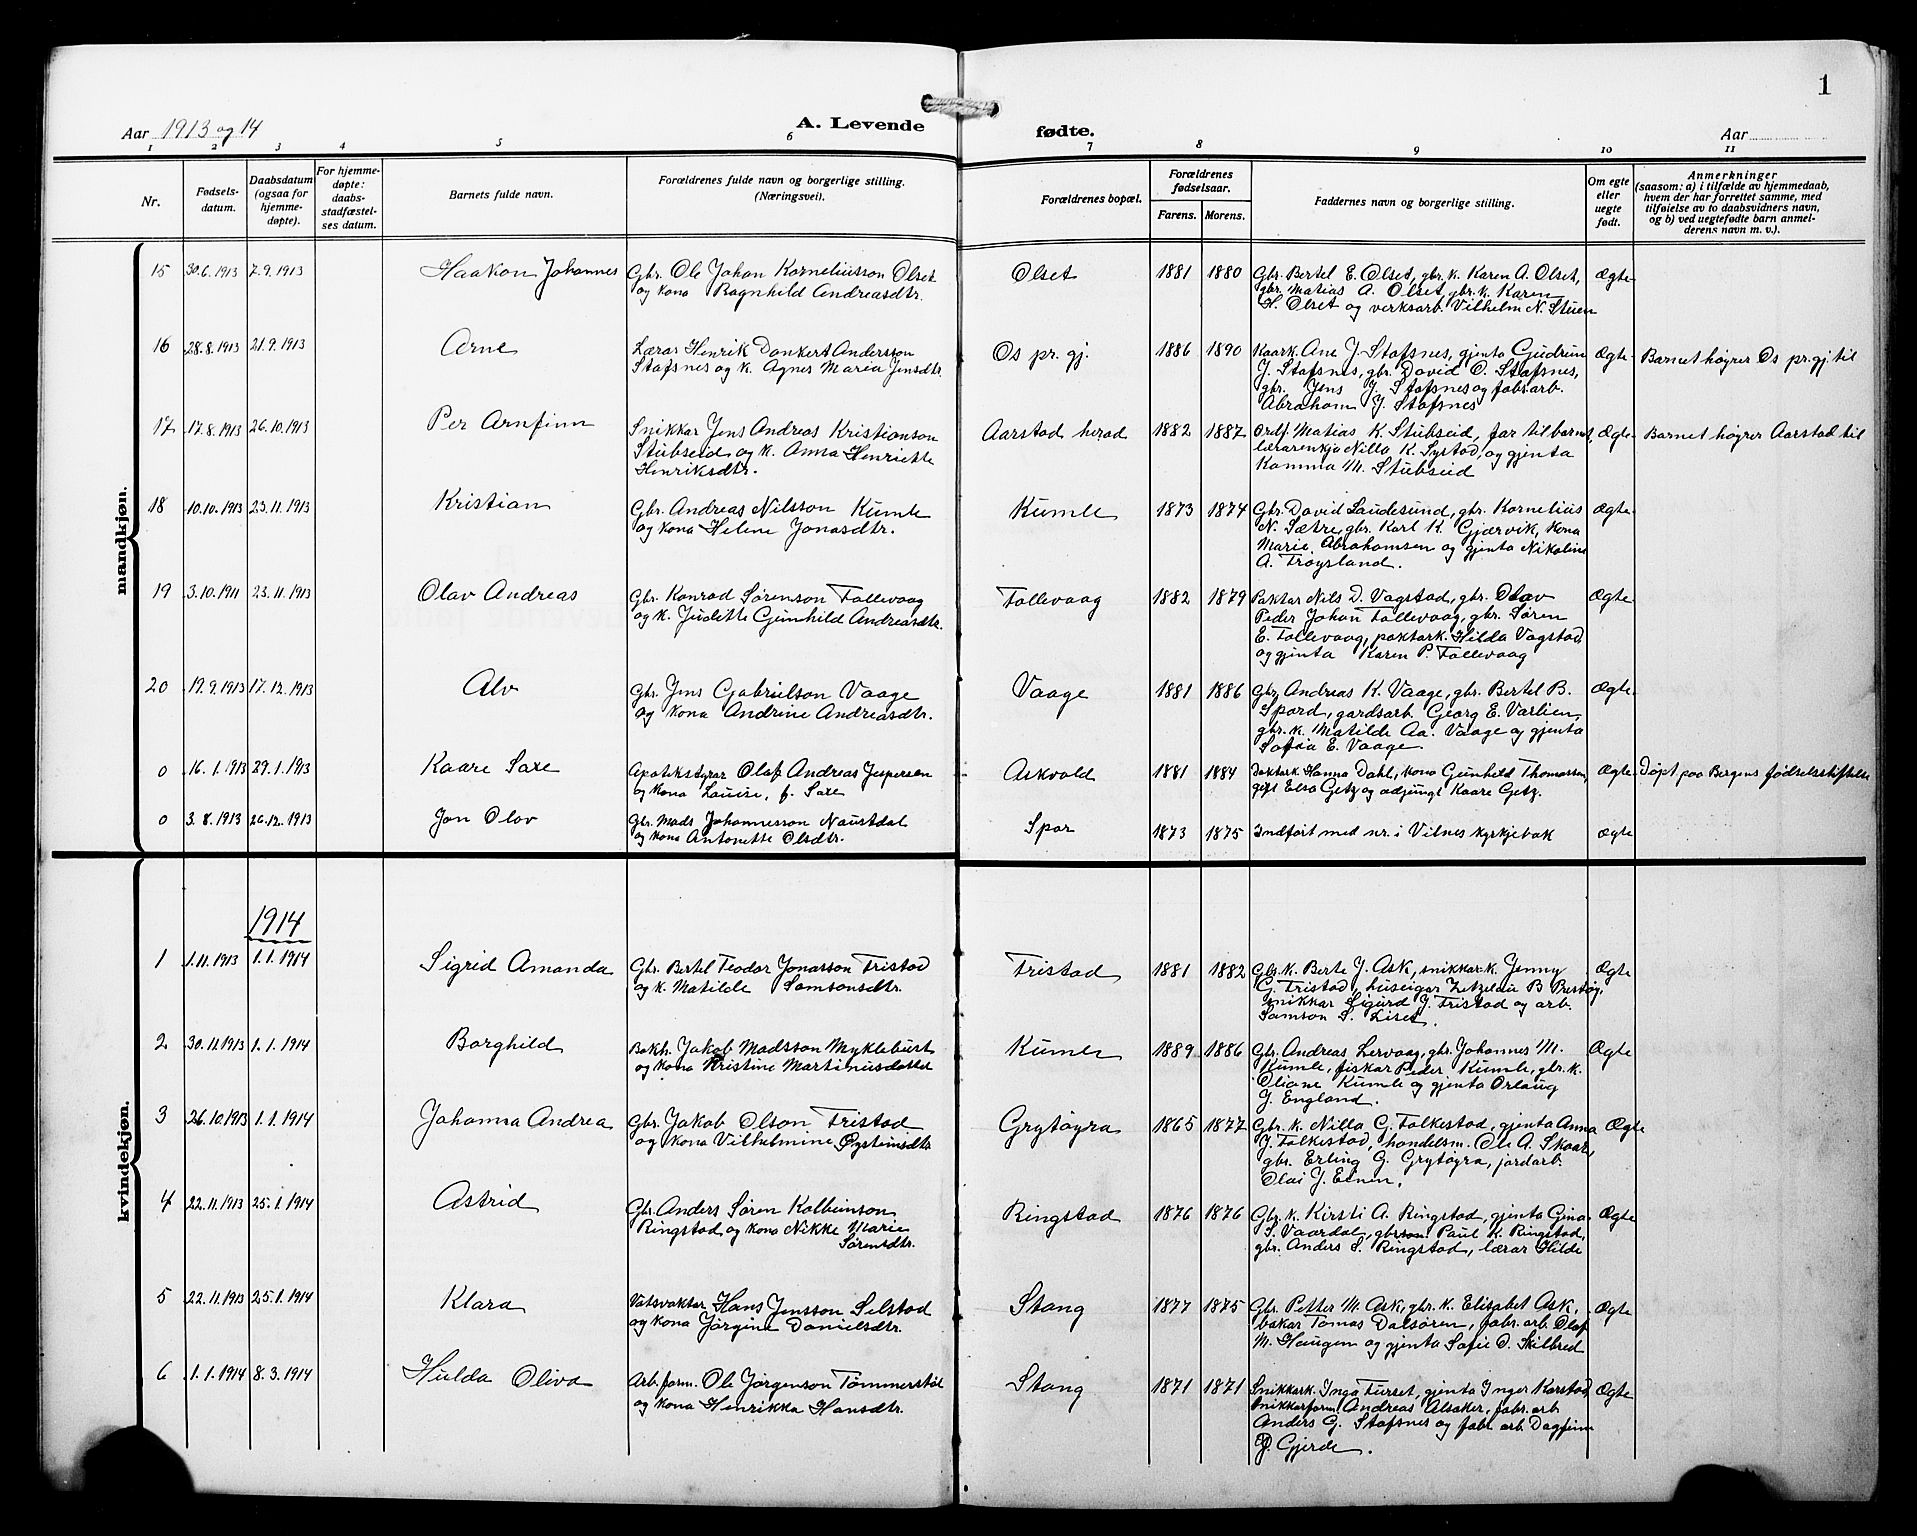 1
Aar 1913 og 14
A. Levende fødte.
Aar
1 2 3 4 5 6 7 8 9 10 11
Nr.
Fødsels-
datum.
Daabsdatum
(ogsaa for
hjemme-
døpte).
For hjemme-
døpte:
daabs-
stadfæstel-
ses datum.
Barnets fulde navn.
Forældrenes fulde navn og borgerlige stilling.
(Næringsvei).
Forældrenes bopæl.
Forældrenes
fødselsaar.
Farens. Morens.
Faddernes navn og borgerlige stilling.
Om egte
eller
uegte
født.
Anmerkninger
(saasom: a) i tilfælde av hjemmedaab,
hvem der har forrettet samme, med
tilføielse av to daabsvidners navn,
og b) ved uegtefødte barn anmel-
derens navn m. v.).
mandkjøn.
15 30.6.1913 7.9.1913 Haakon Johannes
Gbr. Ole Johan Korneliusson Olset
og kona Ragnhild Andreasdtr.
Olset 1881 1880
Gbr. Bertel E. Olset, gbr. k. Karen A. Olset,
gbr. Matias A. Olset, gbr. k. Karen
H. Olset og verksarb. Vilhelm N. Steien
Ægte
16 28.8.1913 21.9.1913 Arne
Lærar Henrik Dankert Andersson
Stafsnes og k. Agnes Maria Jensdtr.
Os pr. gj. 1886 1890
Kaark. Ane J. Stafsnes, gjenta Gudrun
J. Stafsnes, gbr. David O. Stafsnes,
gbr. Jens J. Stafsnes og fabr.arb.
Abraham J. Stafsnes
Ægte
Barnet høyrer Os pr. gj. til
17 17.8.1913 26.10.1913 Per Arnfinn
Snikkar Jens Andreas Kristianson
Stubseid og k. Anna Henriette
Henriksdtr.
Aarstad herad 1882 1887
Ordf. Matias K. Stubseid, far til barnet,
lærarenkja Nilla K. Systad, og gjenta
Kamma M. Stubseid
Ægte
Barnet høyrer Aarstad til
18 10.10.1913 23.11.1913 Kristian
Gbr. Andreas Nilsson Kumle
og kona Helene Jonasdtr.
Kumle 1873 1874
Gbr. David Laudesund, gbr. Kornelius
N. Sætre, gbr. Karl K. Gjærvik, kona
Marie Abrahamsen og gjenta Nikoline
A. Frøysland.
Ægte
19 3.10.1911 23.11.1913 Olav Andreas
Gbr. Konrad Sørenson Follevaag
og k. Juditte Gunhild Andreasdtr.
Follevaag 1882 1879
Paktar Nils D. Vagstad, gbr. Olav
Peder Johan Follevaag, gbr. Søren
E. Follevaag, paktark. Hilda Vagstad
og gjenta Karen P. Follevaag
Ægte
20 19.9.1913 17.12.1913 Alv
Gbr. Jens Gabrielson Vaage
og kona Andrine Andreasdtr.
Vaage 1881 1886
Gbr. Andreas K. Vaage, gbr. Bertel B.
Spord, gardsarb. Georg E. Varlien,
gbr. k. Matilde Aa. Vaage og gjenta
Sofia E. Vaage
Ægte
0 16.1.1913 29.1.1913 Kaare Saxe
Apotekstyrar Olaf Andreas Jespersen
og kona Louise, f. Saxe
Askvold 1881 1884
Doktark. Hanna Dahl, kona Gunhild Thomassen,
gift Elsa Getz og adjungt Kaare Getz.
Ægte
Døpt paa Bergens fødselsstiftelse
0 3.8.1913 26.12.1913 Jon Olav
Gbr. Mads Johannesson Naustdal
og kona Antonette Olsdtr.
Spor 1873 1875
Indført med nr. i Vilnes kyrkjebok
Ægte
kvindekjøn.
1914
1 1.11.1913 1.1.1914 Sigrid Amanda
Gbr. Bertel Teodor Jonasson Fristad
og k. Matilde Samsonsdtr.
Fristad 1881 1882
Gbr. k. Berte J. Ask, snikkar k. Jenny
G. Fristad, huseigar Zetzelau B. Berstøy,
snikkar Sigurd J. Fristad og arb.
Samson S. Liset.
Ægte
2 30.11.1913 1.1.1914 Borghild
Bokh. Jakob Madsson Myklebust
og kona Kristine Martinusdotter
Kumle 1889 1886
Gbr. Andreas Lervaag, gbr. Johannes M.
Kumle, fiskar Peder Kumle, gbr. k.
Oliane Kumle og gjenta Orlaug
J. England.
Ægte
3 26.10.1913 1.1.1914 Johanna Andrea
Gbr. Jakob Olson Fristad
og kona Vilhelmine Øysteinsdtr.
Grytøyra 1865 1877
Gbr. k. Nilla G. Folkestad, gjenta Anna
J. Folkestad, handelsm. Ole A. Skaar,
gbr. Erling G. Grytøyra, jordarb.
Olai J. Einen.
Ægte
4 22.11.1913 25.1.1914 Astrid
Gbr. Anders Søren Kolbeinson
Ringstad og kona Nikke Marie
Sørensdtr.
Ringstad 1876 1876
Gbr. k. Kirsti A. Ringstad, gjenta Gina
S. Vaardal, gbrson Paul K. Ringstad,
gbr. Anders S. Ringstad, lærar Hilde
Ægte
5 22.11.1913 25.1.1914 Klara
Vatsvaktar Hans Jensson Selstad
og kona Jørgine Danielsdtr.
Stang 1877 1875
Gbr. Petter M. Ask, gbr. k. Elisabet Ask,
bakar Tomas Dalsøren, fabr. arb. Olaf
M. Haugen og gjenta Sofie D. Skilbred
Ægte
6 1.1.1914 8.3.1914 Hulda Oliva
Arb.form. Ole Jørgenson Tømmerstøl
og kona Henrikka Hansdtr.
Stang 1871 1871
Snikkark. Inga Furset, gjenta Inger Karstad,
snikkarform. Andreas Alsaker, fabr. arb
Anders G. Stafsnes og fabr. arb. Dagfinn
J. Gjerde.
Ægte